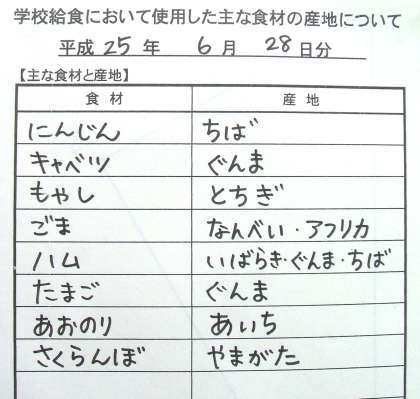 学校給食において使用した主な食材の産地について
平成 25 年 6 月 28 日分
【主な食材と産地】
食材 産地
にんじん ちば
キャベツ ぐんま
もやし とちぎ
ごま なんべい・アフリカ
ハム いばらき・ぐんま・ちば
たまご ぐんま
あおのり あいち
さくらんぼ やまがた